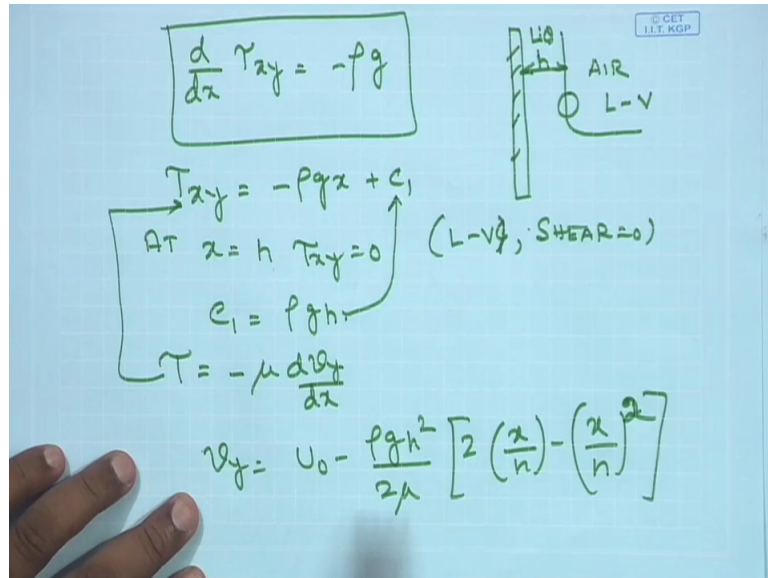 © CET
I.I.T. KGP
d/dx τxy = -ρg
LIQ
h
AIR
L-V
τxy = -ρgx + c₁
AT x = h τxy = 0 (L-V, SHEAR=0)
c₁ = ρgh
τ = -μ dvy/dx
vy = U₀ - ρgh²/2μ [2 (x/h) - (x/h)²]